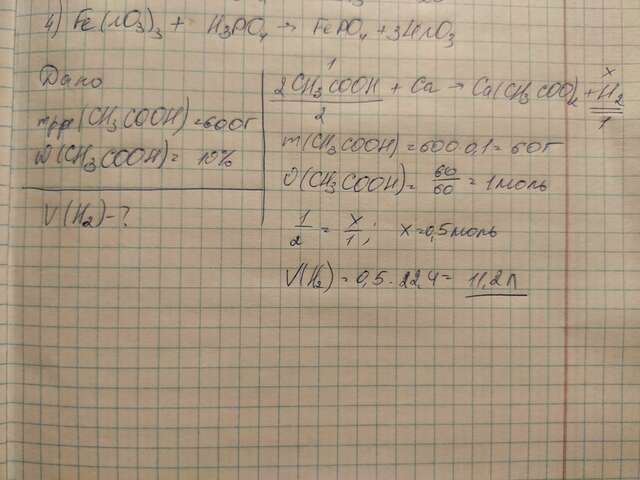 4) Fe(NO3)3 + H3PO4 → FePO4 + 3HNO3
Дано
mр-ра(CH3COOH) = 600г
ω(CH3COOH) = 10%
V(H2) - ?
1 x
2CH3COOH + Ca → Ca(CH3COO)2 + H2
2 1
m(CH3COOH) = 600·0,1 = 60г
ν(CH3COOH) = 60/60 = 1моль
1/2 = x/1; x = 0,5 моль
V(H2) = 0,5 · 22,4 = 11,2л